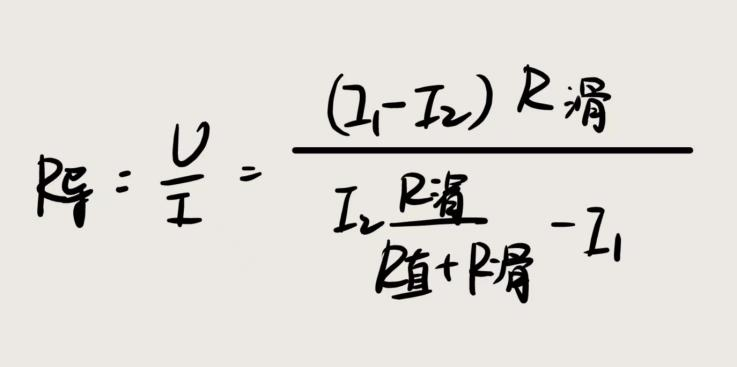 R导 = U/I = (I₁-I₂) R滑 / (I₂ R滑/(R直+R滑) - I₁)